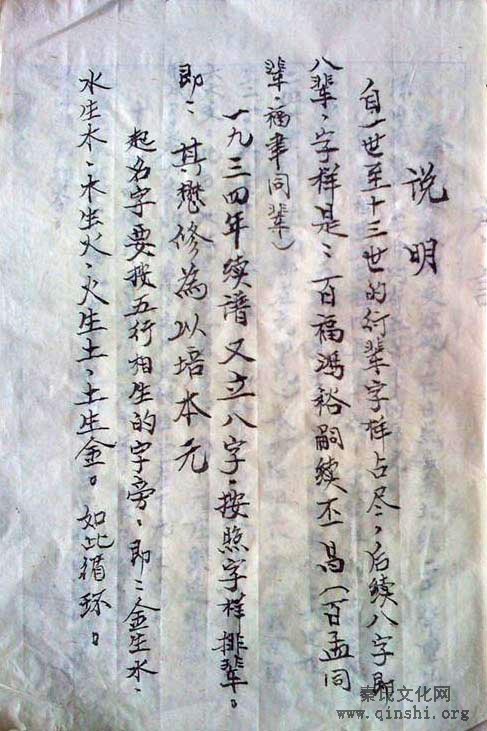 说明
自一世至十三世的行辈字样占尽，后续八字即
八辈，字样是：百福鸿裕嗣续丕昌（百孟同
辈，福聿同辈）
一九三四年续谱又立八字，按照字样排辈。
即：其懋修为以培本元
起名字要按五行相生的字旁，即：金生水、
水生木、木生火、火生土、土生金。如此循环。
秦氏文化网
www.qinshi.org